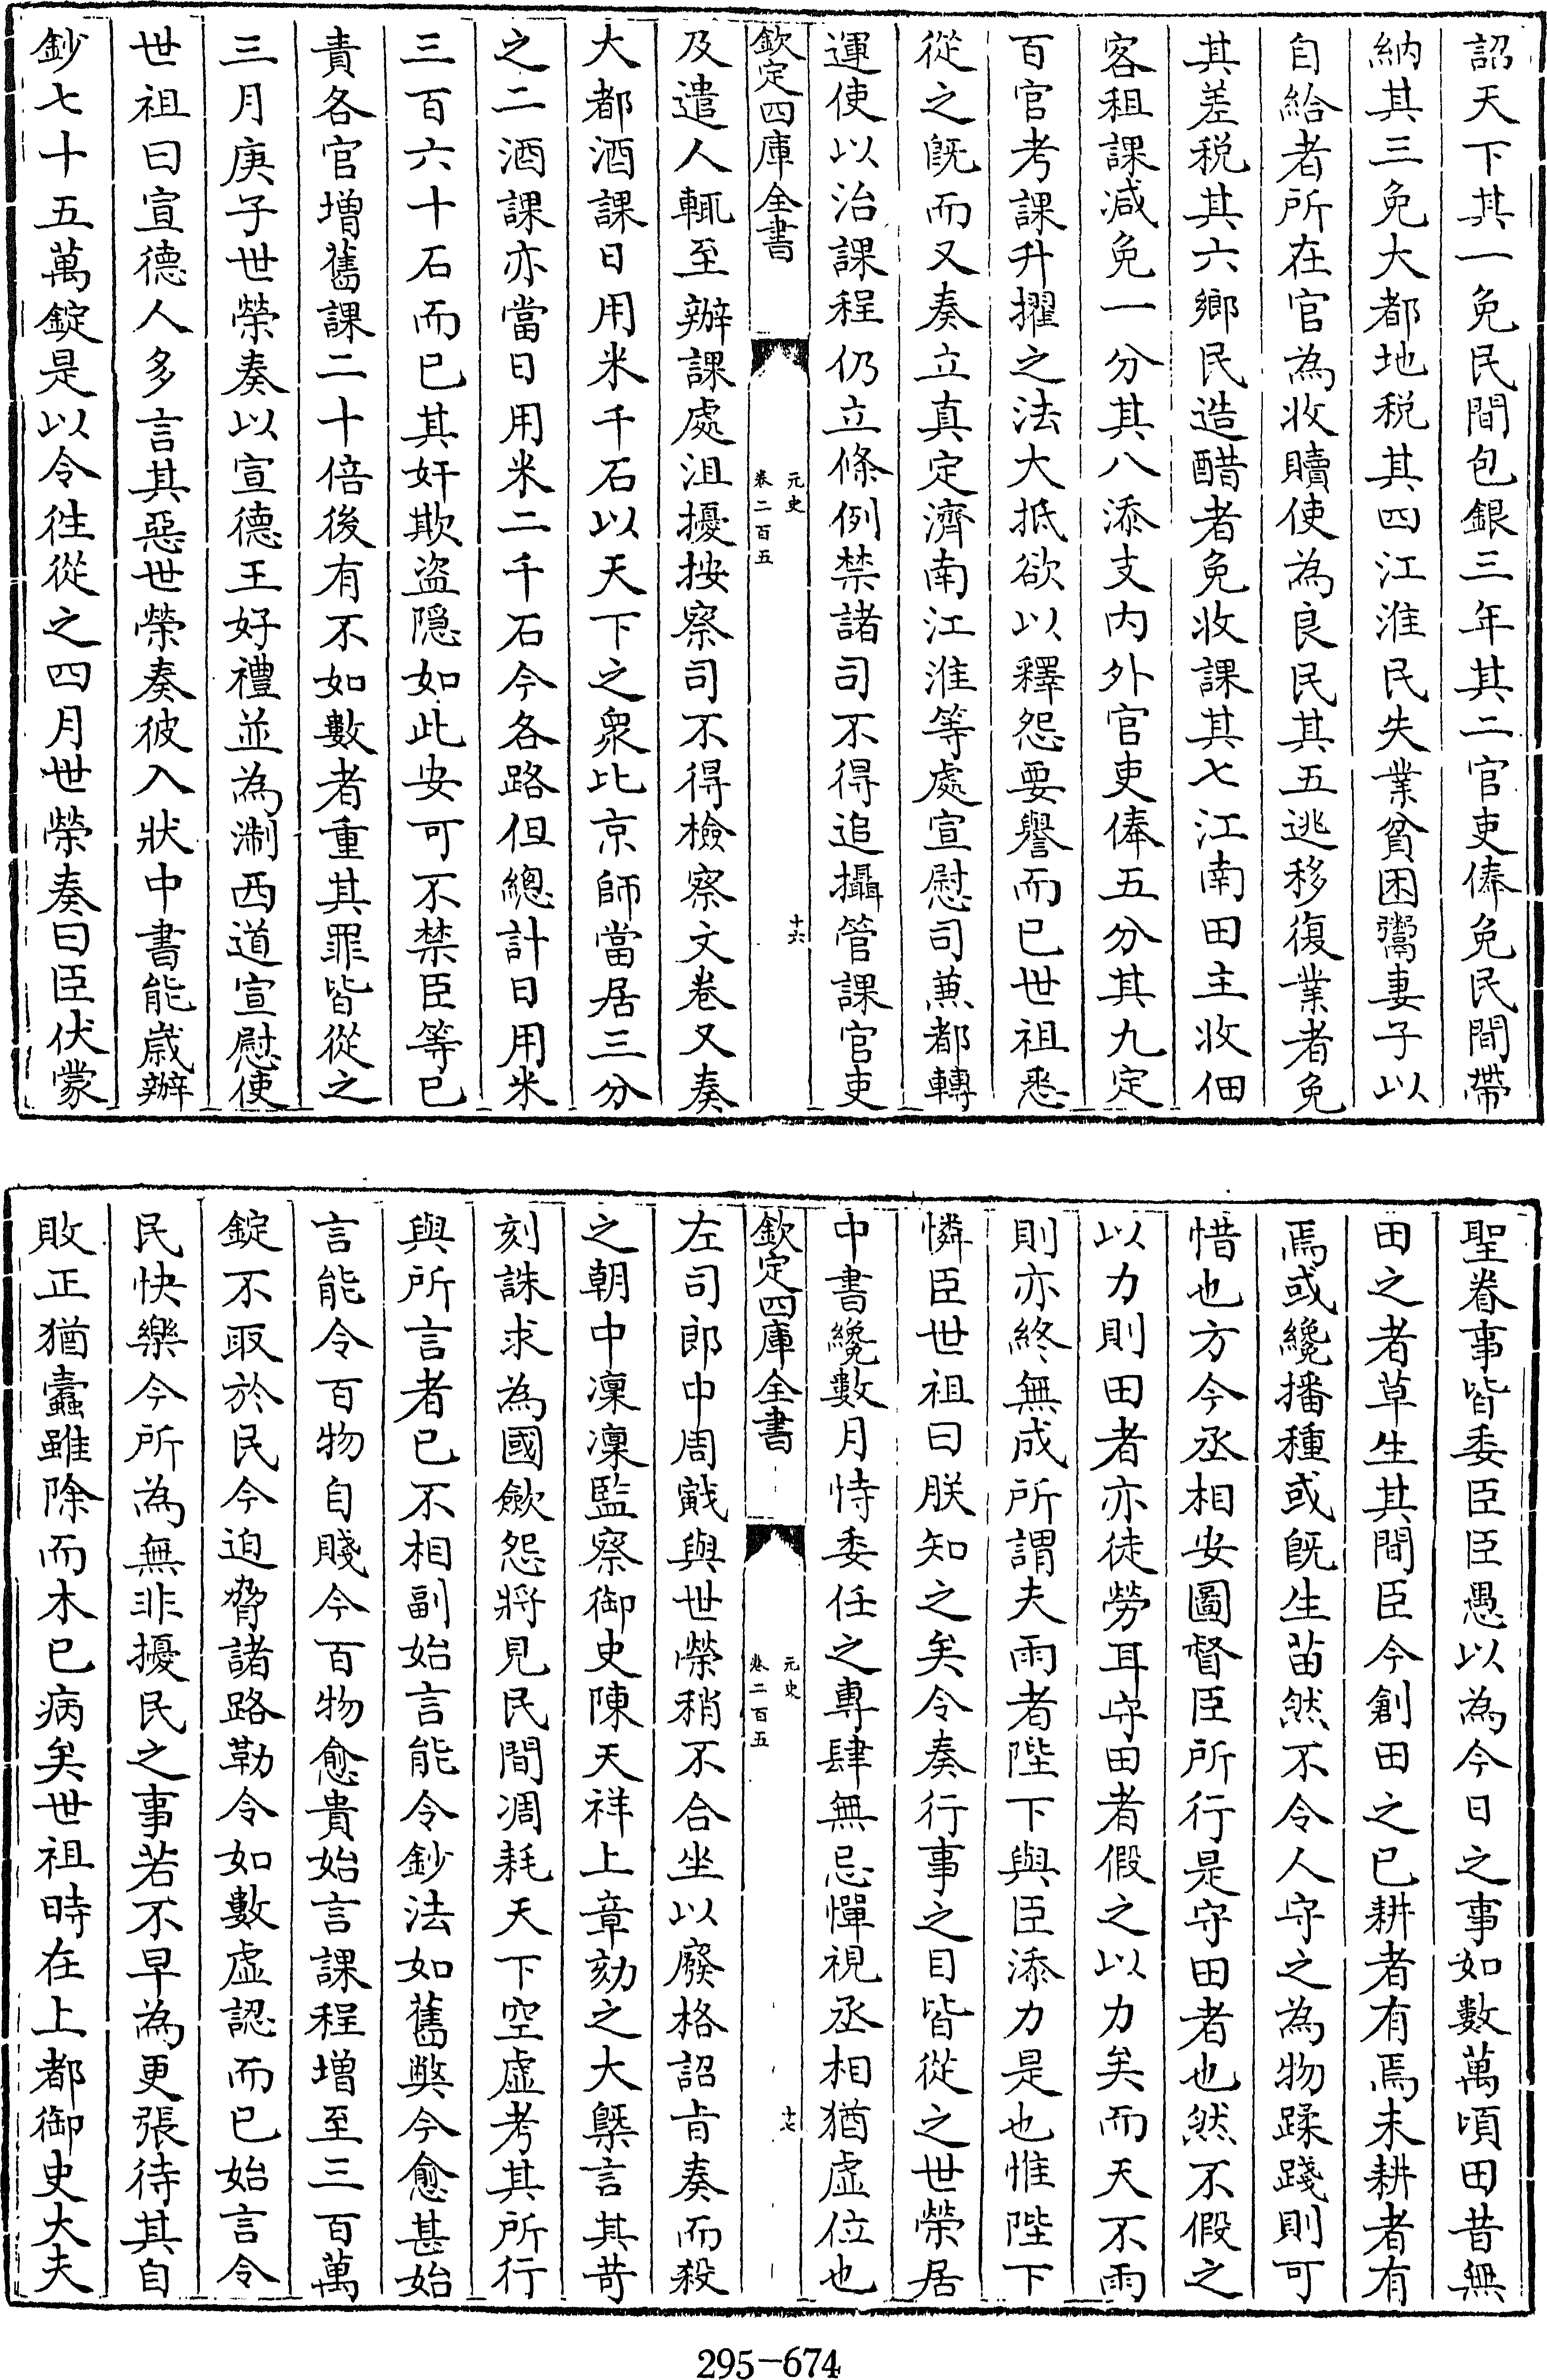 詔天下其一免民間包銀三年其二官吏俸免民間帶
納其三免大都地税其四江淮民失業貧困鬻妻子以
自給者所在官為收贖使為良民其五逃移復業者免
其差税其六鄉民造醋者免收課其七江南田主收佃
客租課減免一分其八添支内外官吏俸五分其九定
百官考課升擢之法大抵欲以釋怨要譽而已世祖悉
從之既而又奏立真定濟南江淮等處宣慰司兼都轉
運使以治課程仍立條例禁諸司不得追攝管課官吏
欽定四庫全書
元史
卷二百五
十六
及遣人輒至辦課處沮擾按察司不得檢察文卷又奏
大都酒課日用米千石以天下之衆比京師當居三分
之二酒課亦當日用米二千石今各路但總計日用米
三百六十石而已其奸欺盜隠如此安可不禁臣等已
責各官增舊課二十倍後有不如數者重其罪皆從之
三月庚子世榮奏以宣德王好禮並為淛西道宣慰使
世祖曰宣德人多言其惡世榮奏彼入狀中書能歳辦
鈔七十五萬錠是以令徃從之四月世榮奏曰臣伏蒙
聖眷事皆委臣臣愚以為今日之事如數萬頃田昔無
田之者草生其間臣今創田之已耕者有焉未耕者有
焉或纔播種或既生苗然不令人守之為物蹂踐則可
惜也方今丞相安圖督臣所行是守田者也然不假之
以力則田者亦徒勞耳守田者假之以力矣而天不雨
則亦終無成所謂夫雨者陛下與臣添力是也惟陛下
憐臣世祖曰朕知之矣令奏行事之目皆從之世榮居
中書纔數月恃委任之專肆無忌憚視丞相猶虚位也
欽定四庫全書
元史
卷二百五
十七
左司郎中周戭與世榮稍不合坐以廢格詔㫖奏而殺
之朝中凜凜監察御史陳天祥上章劾之大槩言其苛
刻誅求為國斂怨將見民間凋耗天下空虚考其所行
與所言者已不相副始言能令鈔法如舊獘今愈甚始
言能令百物自賤今百物愈貴始言課程增至三百萬
錠不取於民今迫脅諸路勒令如數虚認而已始言令
民快樂今所為無非擾民之事若不早為更張待其自
敗正猶蠹雖除而木已病矣世祖時在上都御史大夫
295-674